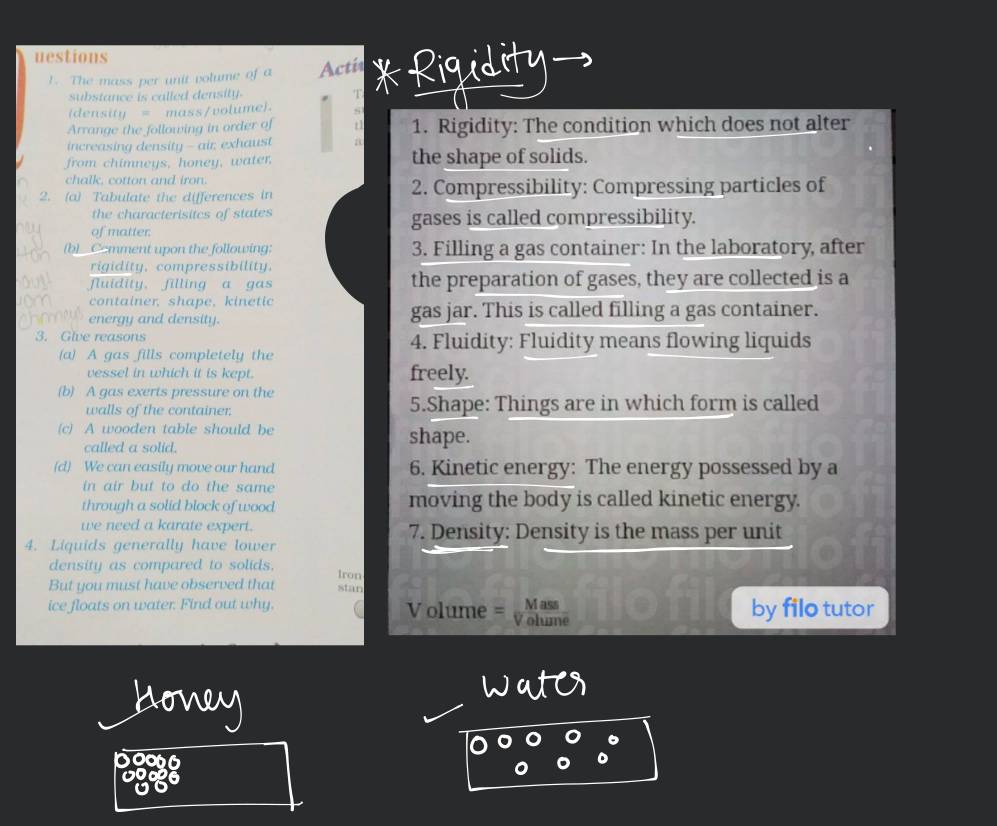 uestions
1. The mass per unit volume of a
substance is called density.
(density = mass/volume).
Arrange the following in order of
increasing density – air, exhaust
from chimneys, honey, water,
chalk, cotton and iron.
2. (a) Tabulate the differences in
the characterisitcs of states
of matter.
(b) Comment upon the following:
rigidity, compressibility,
fluidity, filling a gas
container, shape, kinetic
energy and density.
3. Give reasons
(a) A gas fills completely the
vessel in which it is kept.
(b) A gas exerts pressure on the
walls of the container.
(c) A wooden table should be
called a solid.
(d) We can easily move our hand
in air but to do the same
through a solid block of wood
we need a karate expert.
4. Liquids generally have lower
density as compared to solids.
But you must have observed that
ice floats on water. Find out why.
Acti
Iron
stan
* Rigidity →
1. Rigidity: The condition which does not alter
the shape of solids.
2. Compressibility: Compressing particles of
gases is called compressibility.
3. Filling a gas container: In the laboratory, after
the preparation of gases, they are collected is a
gas jar. This is called filling a gas container.
4. Fluidity: Fluidity means flowing liquids
freely.
5.Shape: Things are in which form is called
shape.
6. Kinetic energy: The energy possessed by a
moving the body is called kinetic energy.
7. Density: Density is the mass per unit
Volume = Mass / Volume
by filo tutor
Honey
Water